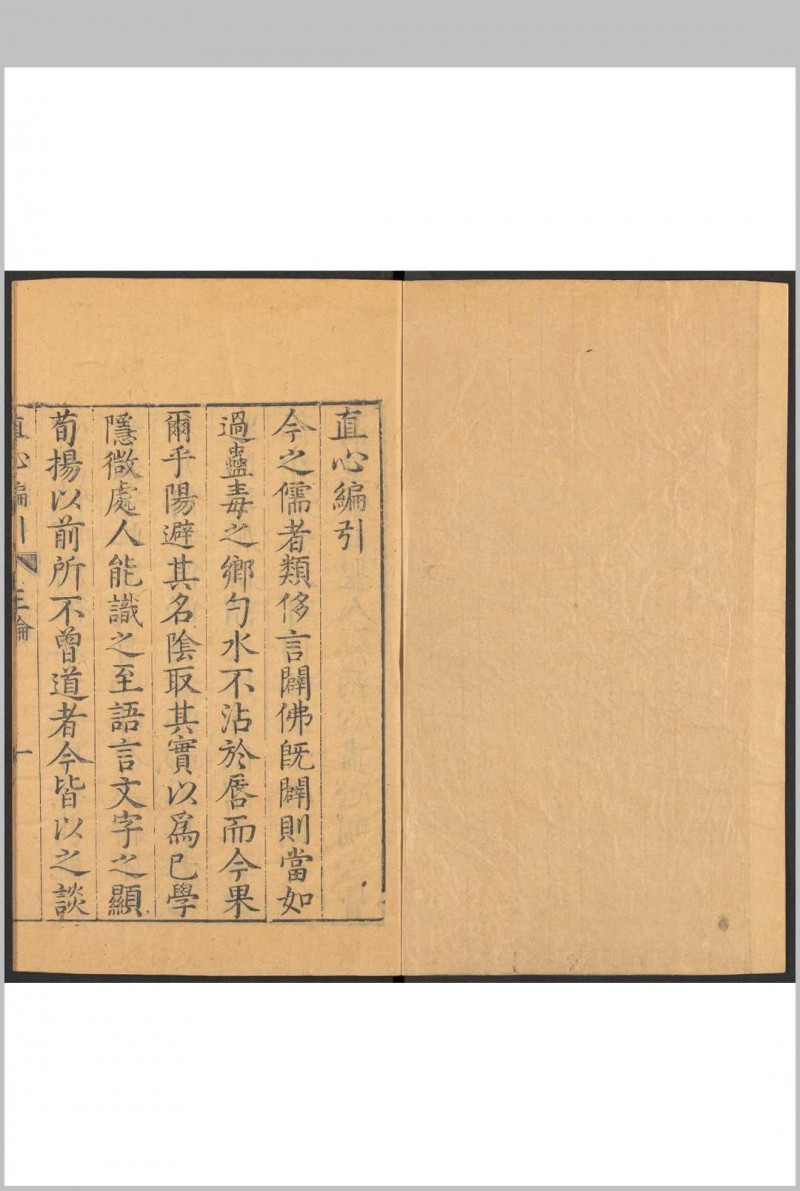 直心編引
今之儒者類侈言闢佛旣闢則當如
過蠱毒之鄉勺水不沾於唇而今果
爾乎陽避其名陰取其實以爲已學
隱微處人能識之至語言文字之顯
荀揚以前所不曾道者今皆以之談
直心編引
一